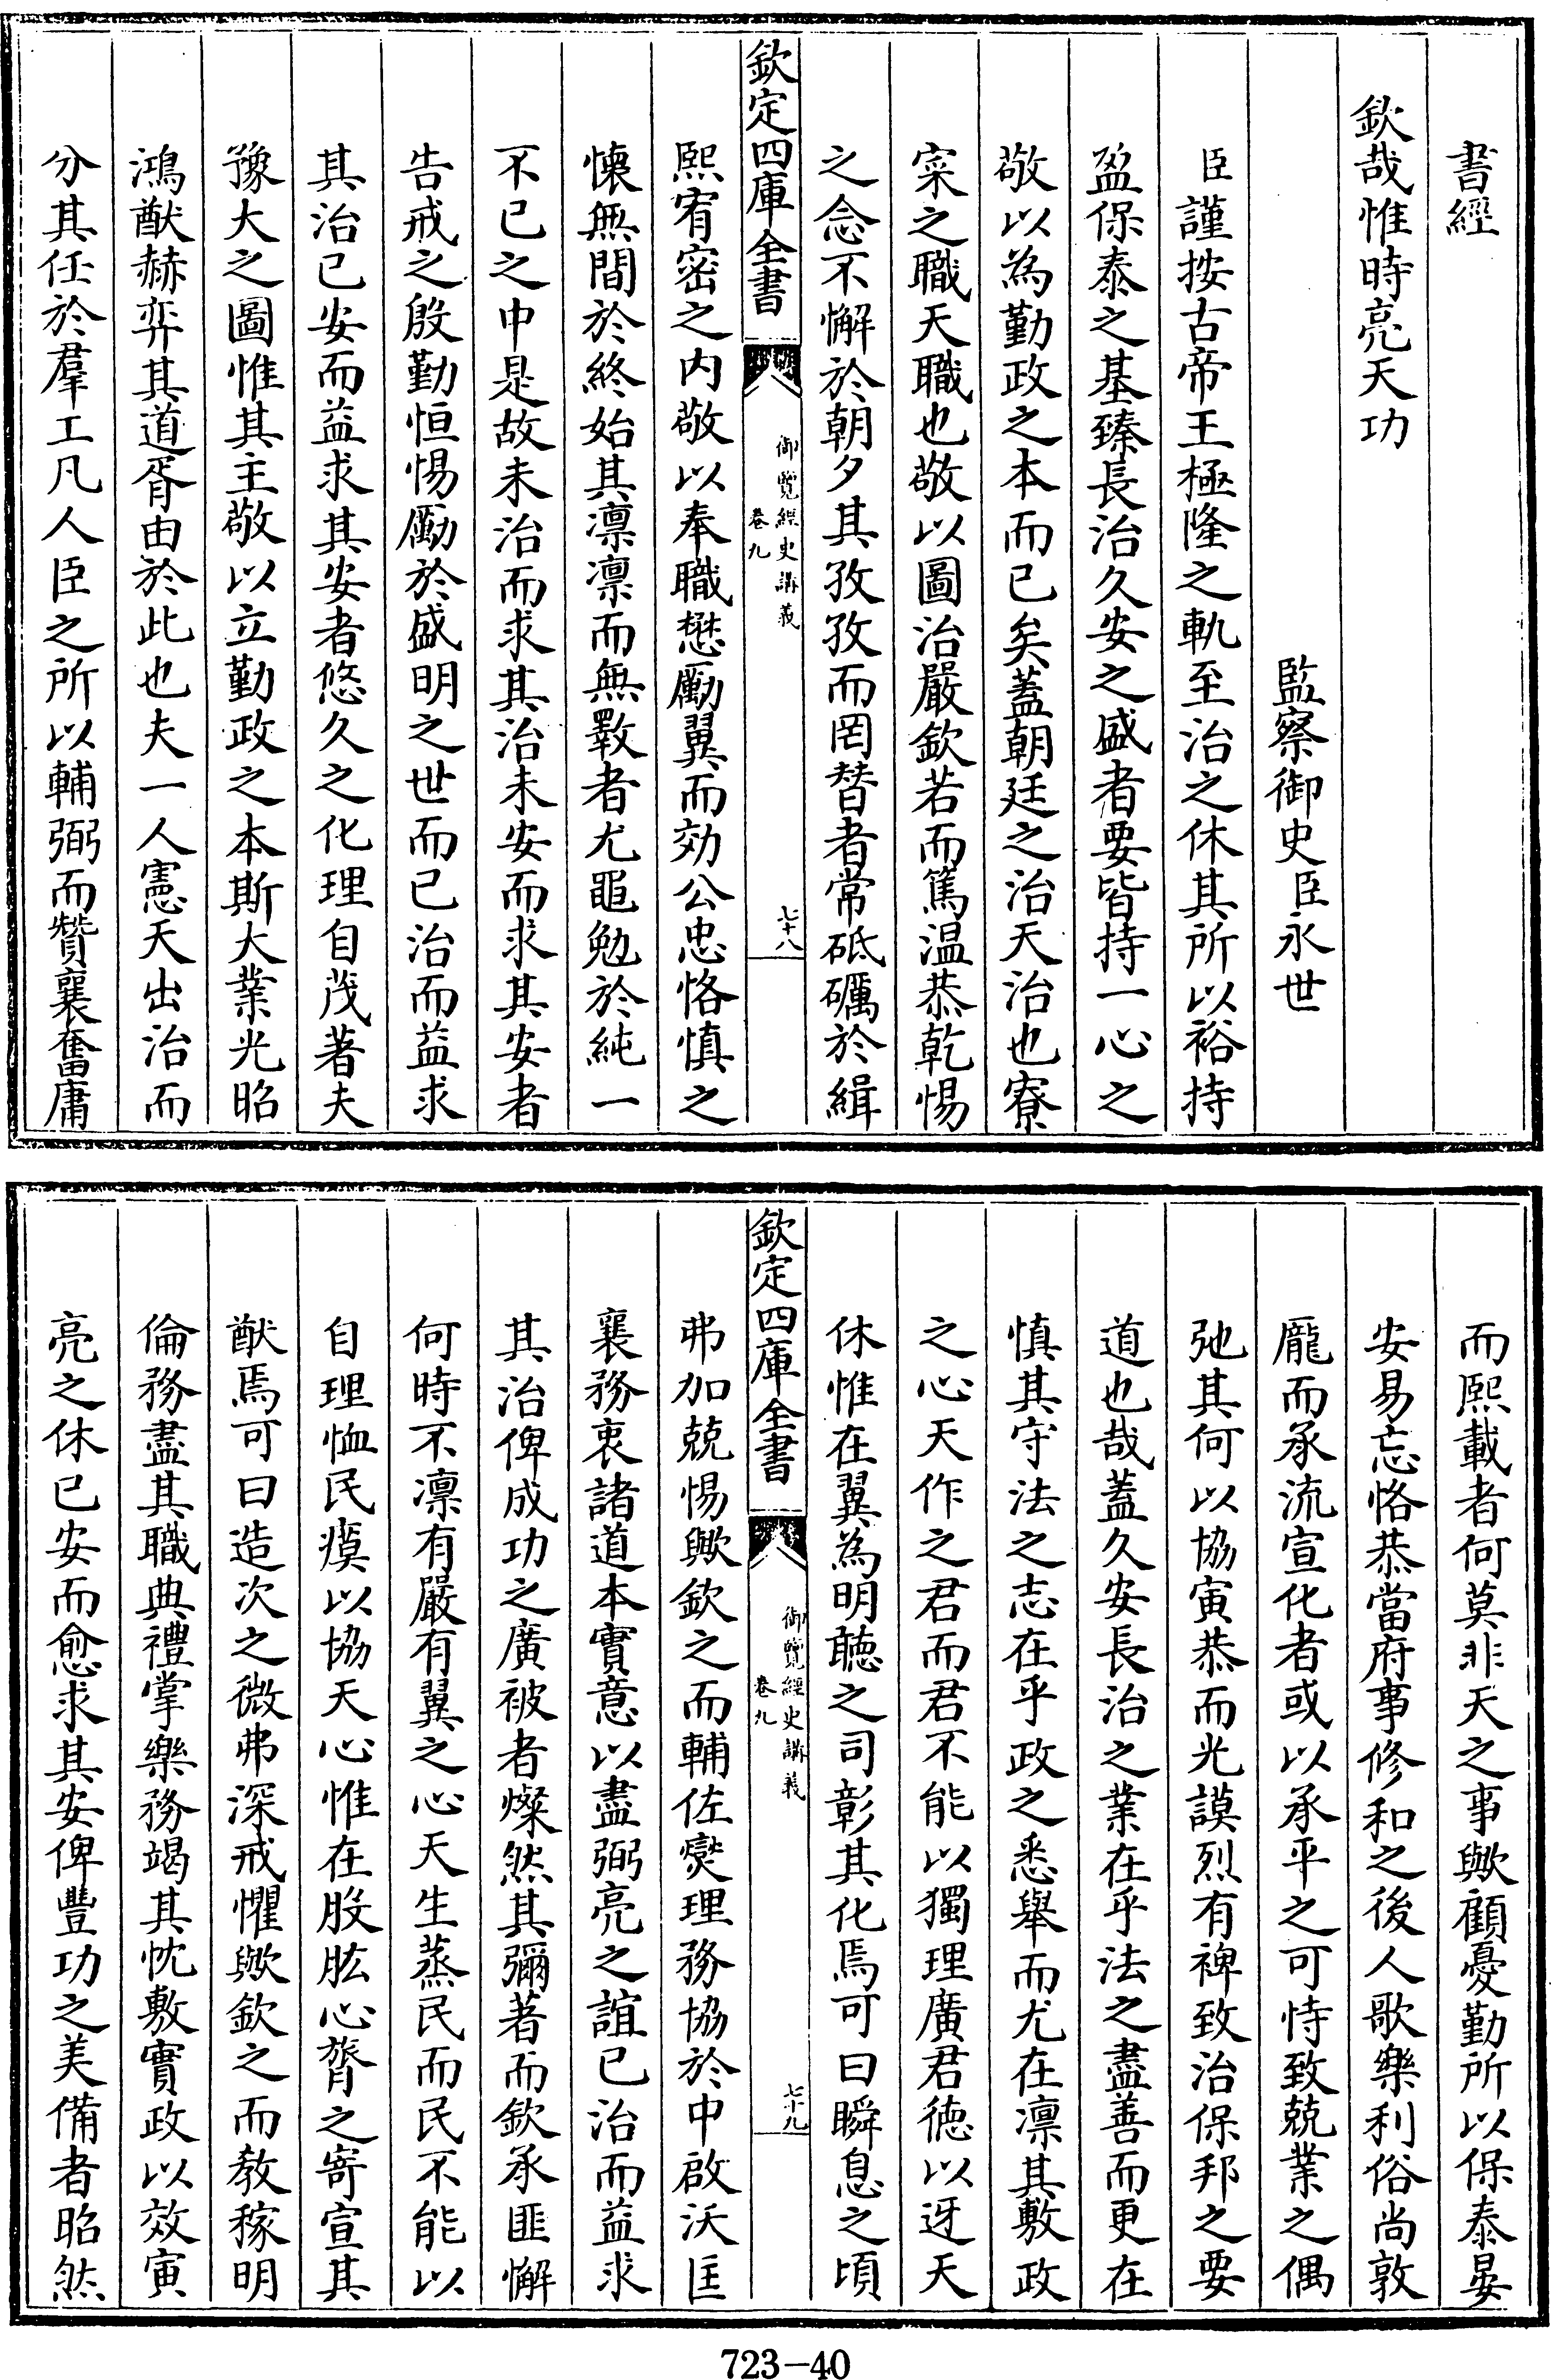 書經
欽哉惟時亮天功
監察御史臣永世
臣謹按古帝王極隆之軌至治之休其所以裕持
盈保泰之基臻長治久安之盛者要皆持一心之
敬以為勤政之本而已矣蓋朝廷之治天治也寮
寀之職天職也敬以圖治嚴欽若而篤温恭乾惕
之念不懈於朝夕其孜孜而罔替者常砥礪於緝
欽定四庫全書
御覽經史講義
卷九
七十八
熙宥密之内敬以奉職懋勵翼而効公忠恪慎之
懷無間於終始其凛凛而無斁者尤黽勉於純一
不已之中是故未治而求其治未安而求其安者
告戒之殷勤恒惕勵於盛明之世而已治而益求
其治已安而益求其安者悠久之化理自茂著夫
豫大之圖惟其主敬以立勤政之本斯大業光昭
鴻猷赫弈其道胥由於此也夫一人憲天出治而
分其任於羣工凡人臣之所以輔弼而贊襄奮庸
而熙載者何莫非天之事歟顧憂勤所以保泰晏
安易忘恪恭當府事修和之後人歌樂利俗尚敦
龐而承流宣化者或以承平之可恃致兢業之偶
弛其何以協寅恭而光謨烈有裨致治保邦之要
道也哉蓋久安長治之業在乎法之盡善而更在
慎其守法之志在乎政之悉舉而尤在凛其敷政
之心天作之君而君不能以獨理廣君徳以迓天
休惟在翼為明聽之司彰其化焉可曰瞬息之頃
欽定四庫全書
御覽經史講義
卷九
七十九
弗加兢惕歟欽之而輔佐爕理務協於中啟沃匡
襄務衷諸道本實意以盡弼亮之誼已治而益求
其治俾成功之廣被者燦然其彌著而欽承匪懈
何時不凛有嚴有翼之心天生蒸民而民不能以
自理恤民瘼以協天心惟在股肱心膂之寄宣其
猷焉可曰造次之微弗深戒懼歟欽之而教稼明
倫務盡其職典禮掌樂務竭其忱敷實政以效寅
亮之休已安而愈求其安俾豐功之美備者昭然
723-40